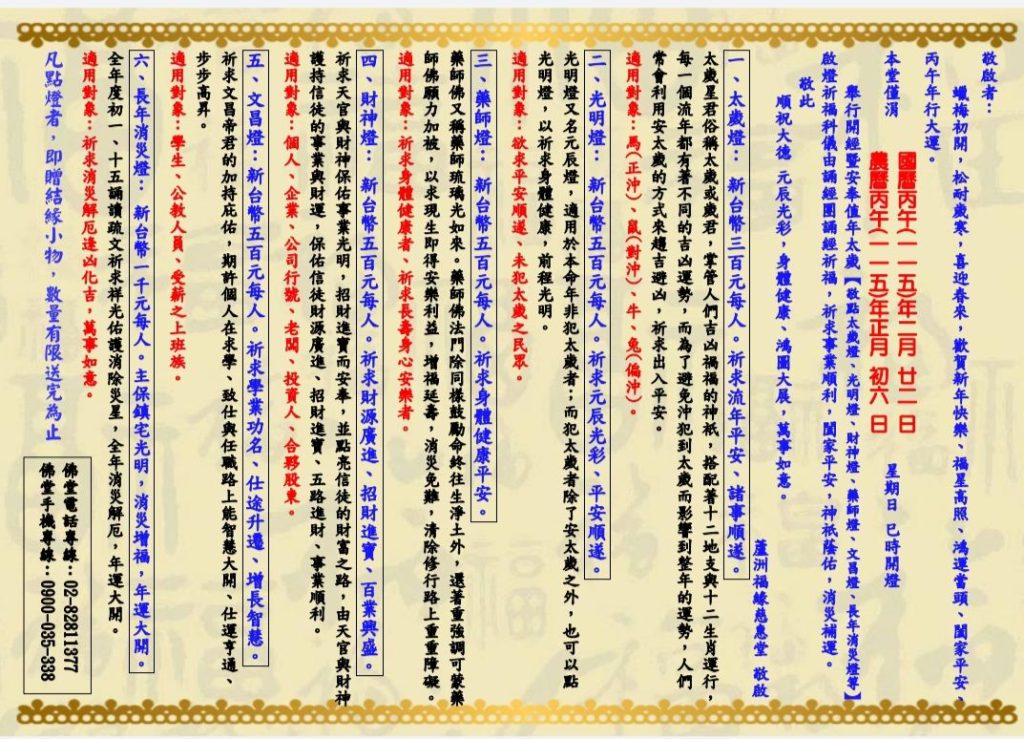 敬啟者：
蠟梅初開，松耐歲寒，喜迎春來，歡賀新年快樂、福星高照、鴻運當頭、闔家平安、
丙午年行大運。
本堂僅涓
國曆丙午(一一五)年二月 廿二 日
農曆丙午(一一五)年正月 初六 日
星期日 巳時開燈
舉行開經暨安奉值年太歲【敬點太歲燈、光明燈、財神燈、藥師燈、文昌燈、長年消災燈等】
啟燈祈福科儀由誦經團誦經祈福，祈求事業順利，闔家平安，神祇蔭佑，消災補運。
敬此
順祝大德 元辰光彩，身體健康、鴻圖大展，萬事如意。
蘆洲福緣慈惠堂 敬啟
一、太歲燈： 新台幣三百元每人。祈求流年平安、諸事順遂。
太歲星君俗稱太歲或歲君，掌管人們吉凶禍福的神祇，搭配著十二地支與十二生肖運行，
每一個流年都有著不同的吉凶運勢，而為了避免沖犯到太歲而影響到整年的運勢，人們
常會利用安太歲的方式來趨吉避凶，祈求出入平安。
適用對象：馬(正沖)、鼠(對沖)、牛、兔(偏沖)。
二、光明燈： 新台幣五百元每人。祈求元辰光彩、平安順遂。
光明燈又名元辰燈，適用於本命年非犯太歲者；而犯太歲者除了安太歲之外，也可以點
光明燈，以祈求身體健康，前程光明。
適用對象：欲求平安順遂、未犯太歲之民眾。
三、藥師燈： 新台幣五百元每人。祈求身體健康平安。
藥師佛又稱藥師琉璃光如來。藥師佛法門除同樣鼓勵命終往生淨土外，還著重強調可蒙藥
師佛願力加被，以求現生即得安樂利益，增福延壽，消災免難，清除修行路上重重障礙。
適用對象：祈求身體健康者、祈求長壽身心安樂者。
四、財神燈： 新台幣五百元每人。祈求財源廣進、招財進寶、百業興盛。
祈求天官與財神保佑事業光明，招財進寶而安奉，並點亮信徒的財富之路，由天官與財神
護持信徒的事業與財運，保佑信徒財源廣進、招財進寶、五路進財、事業順利。
適用對象：個人、企業、公司行號、老闆、投資人、合夥股東。
五、文昌燈： 新台幣五百元每人。祈求學業功名、仕途升遷、增長智慧。
祈求文昌帝君的加持庇佑，期許個人在求學、致仕與任職路上能智慧大開、仕運亨通、
步步高昇。
適用對象：學生、公教人員、受薪之上班族。
六、長年消災燈： 新台幣一千元每人。主保鎮宅光明，消災增福，年運大開。
全年度初一、十五誦讀疏文祈求祥光佑護消除災星，全年消災解厄，年運大開。
適用對象：祈求消災解厄逢凶化吉，萬事如意。
凡點燈者，即贈結緣小物，數量有限送完為止
佛堂電話專線：02-82811377
佛堂手機專線：0900-035-338